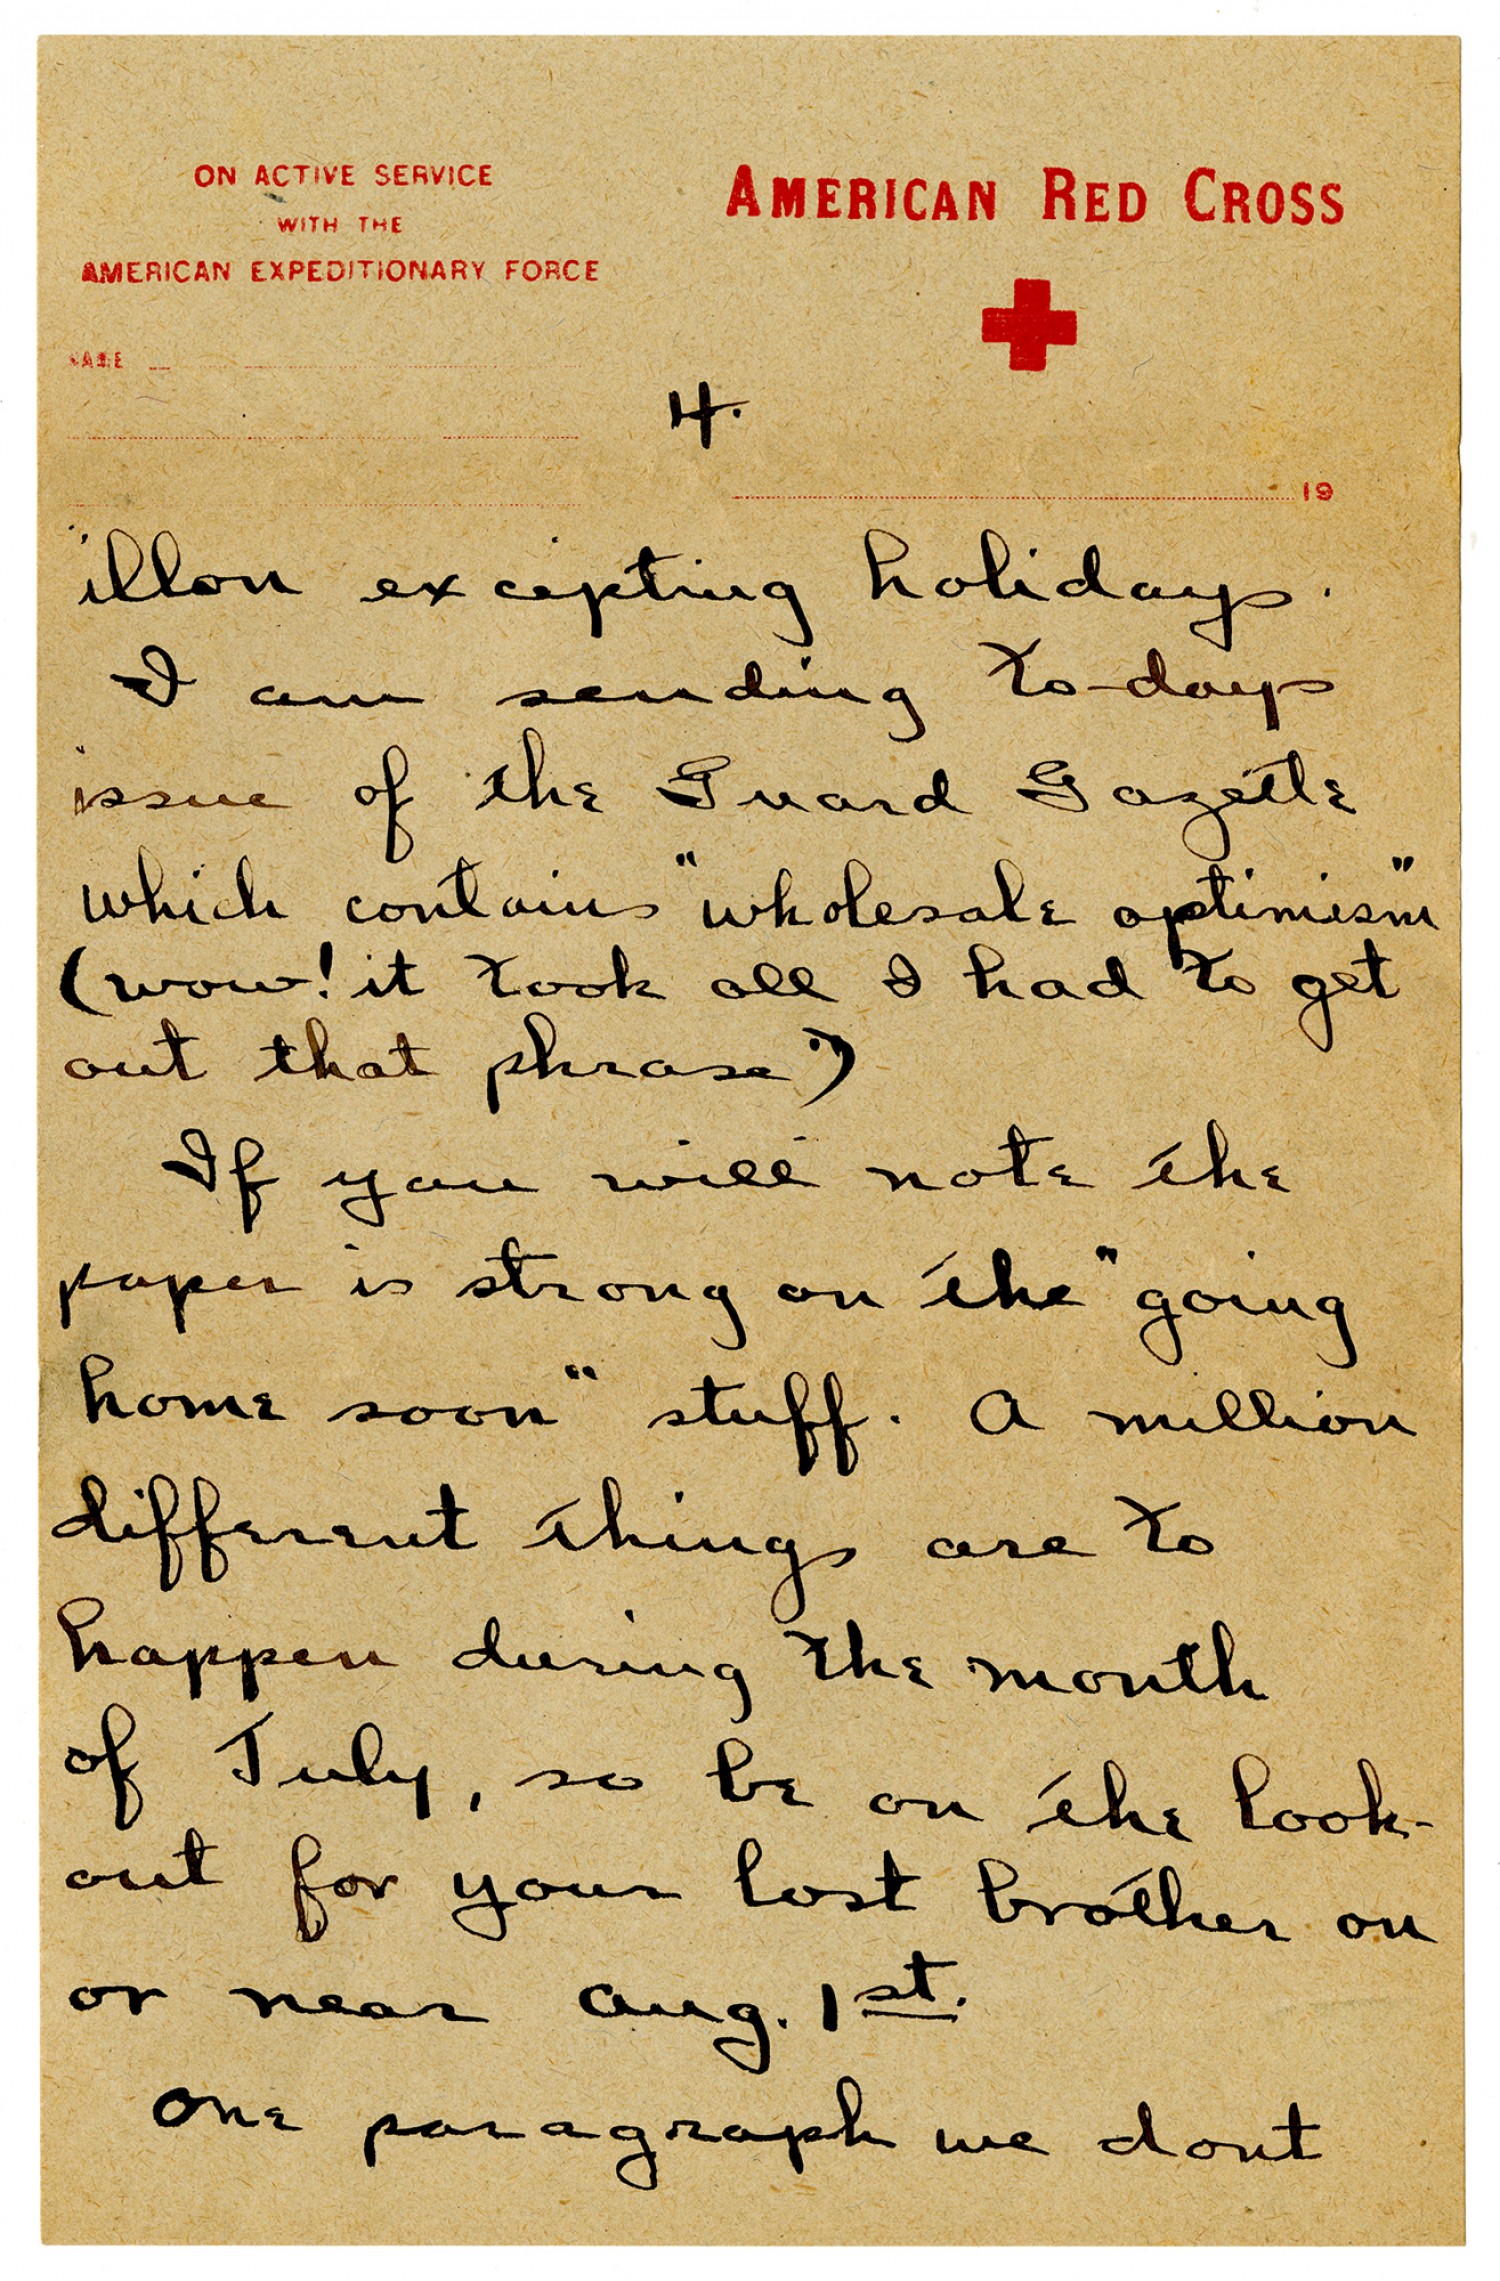 ON ACTIVE SERVICE
WITH THE
AMERICAN EXPEDITIONARY FORCE
AMERICAN RED CROSS
NAME
4.
19
illon excepting holidays.
I am sending to-days
issue of the Guard Gazette
which contains "wholesale optimism"
(wow! it took all I had to get
out that phrase.)
If you will note the
paper is strong on the "going
home soon" stuff. A million
different things are to
happen during the month
of July, so be on the look-
out for your lost brother on
or near Aug. 1st.
One paragraph we dont